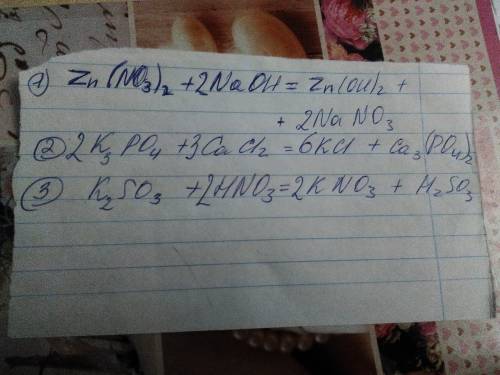 1) Zn(NO3)2 + 2NaOH = Zn(OH)2 +
+ 2NaNO3
2) 2K3PO4 + 3CaCl2 = 6KCl + Ca3(PO4)2
3) K2SO3 + 2HNO3 = 2KNO3 + H2SO3